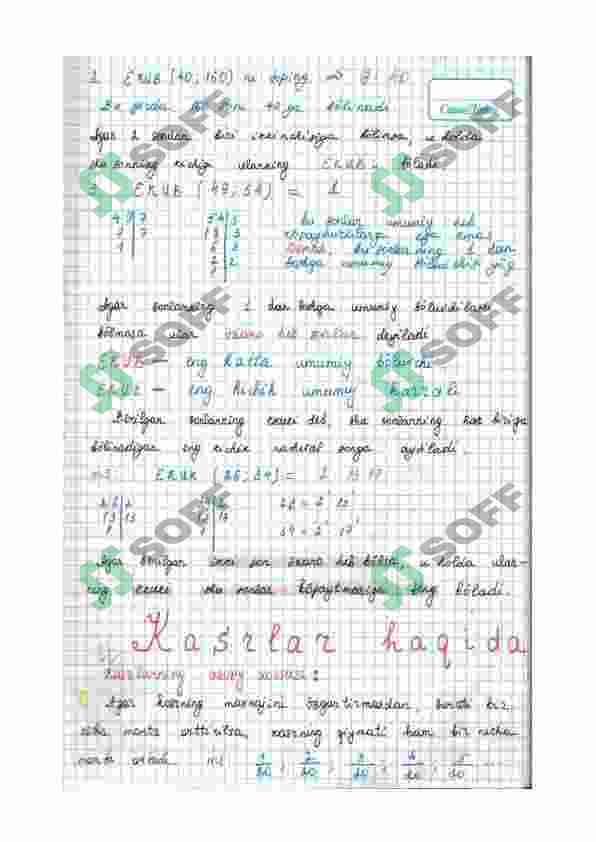 1. EKUB (40, 160) ni toping
Bu yerda 160 soni 40 ga bölinadi
Agar 2 sondan biri ikkinchisiga bölinsa, u holda
shu sonning kichigi ularning EKUBi böladi.
2. EKUB (49, 54) = 1
49 7 54 3
7 7 18 3
1 6 3
2 2
bu sonlar umumiy tub
köpaytuvchiga ega emas,
Demak, bu sonlarning 1 dan
boshqa umumiy böluvchisi yöq
Agar sonlarning 1 dan boshqa umumiy böluvchilari
bölmasa ular özaro tub sonlar deyiladi
EKUB — eng katta umumiy böluvchi
EKUK — eng kichik umumiy karrali
Berilgan sonlarning deb, shu sonlarning har biriga
bölinadigan eng kichik natural songa aytiladi.
EKUK (26, 34) = 2 13 17
26 2
13 13
1
34 2
17 17
1
26 = 2 13
34 = 2 17
Agar berilgan ikki son özaro tub bölsa, u holda ular-
ning shu sonlar köpaytmasiga teng böladi.
Kasrlar haqida
Kasrlarning asosiy xossasi:
Agar kasrning maxrajini özgartirmasdan, surati bir
necha marta orttirilsa, kasrning qiymati ham bir necha
marta ortadi. 1/20; 2/20; 3/20; 4/20; 5/20 ...
SOFF
SOFF
SOFF
SOFF
SOFF
SOFF